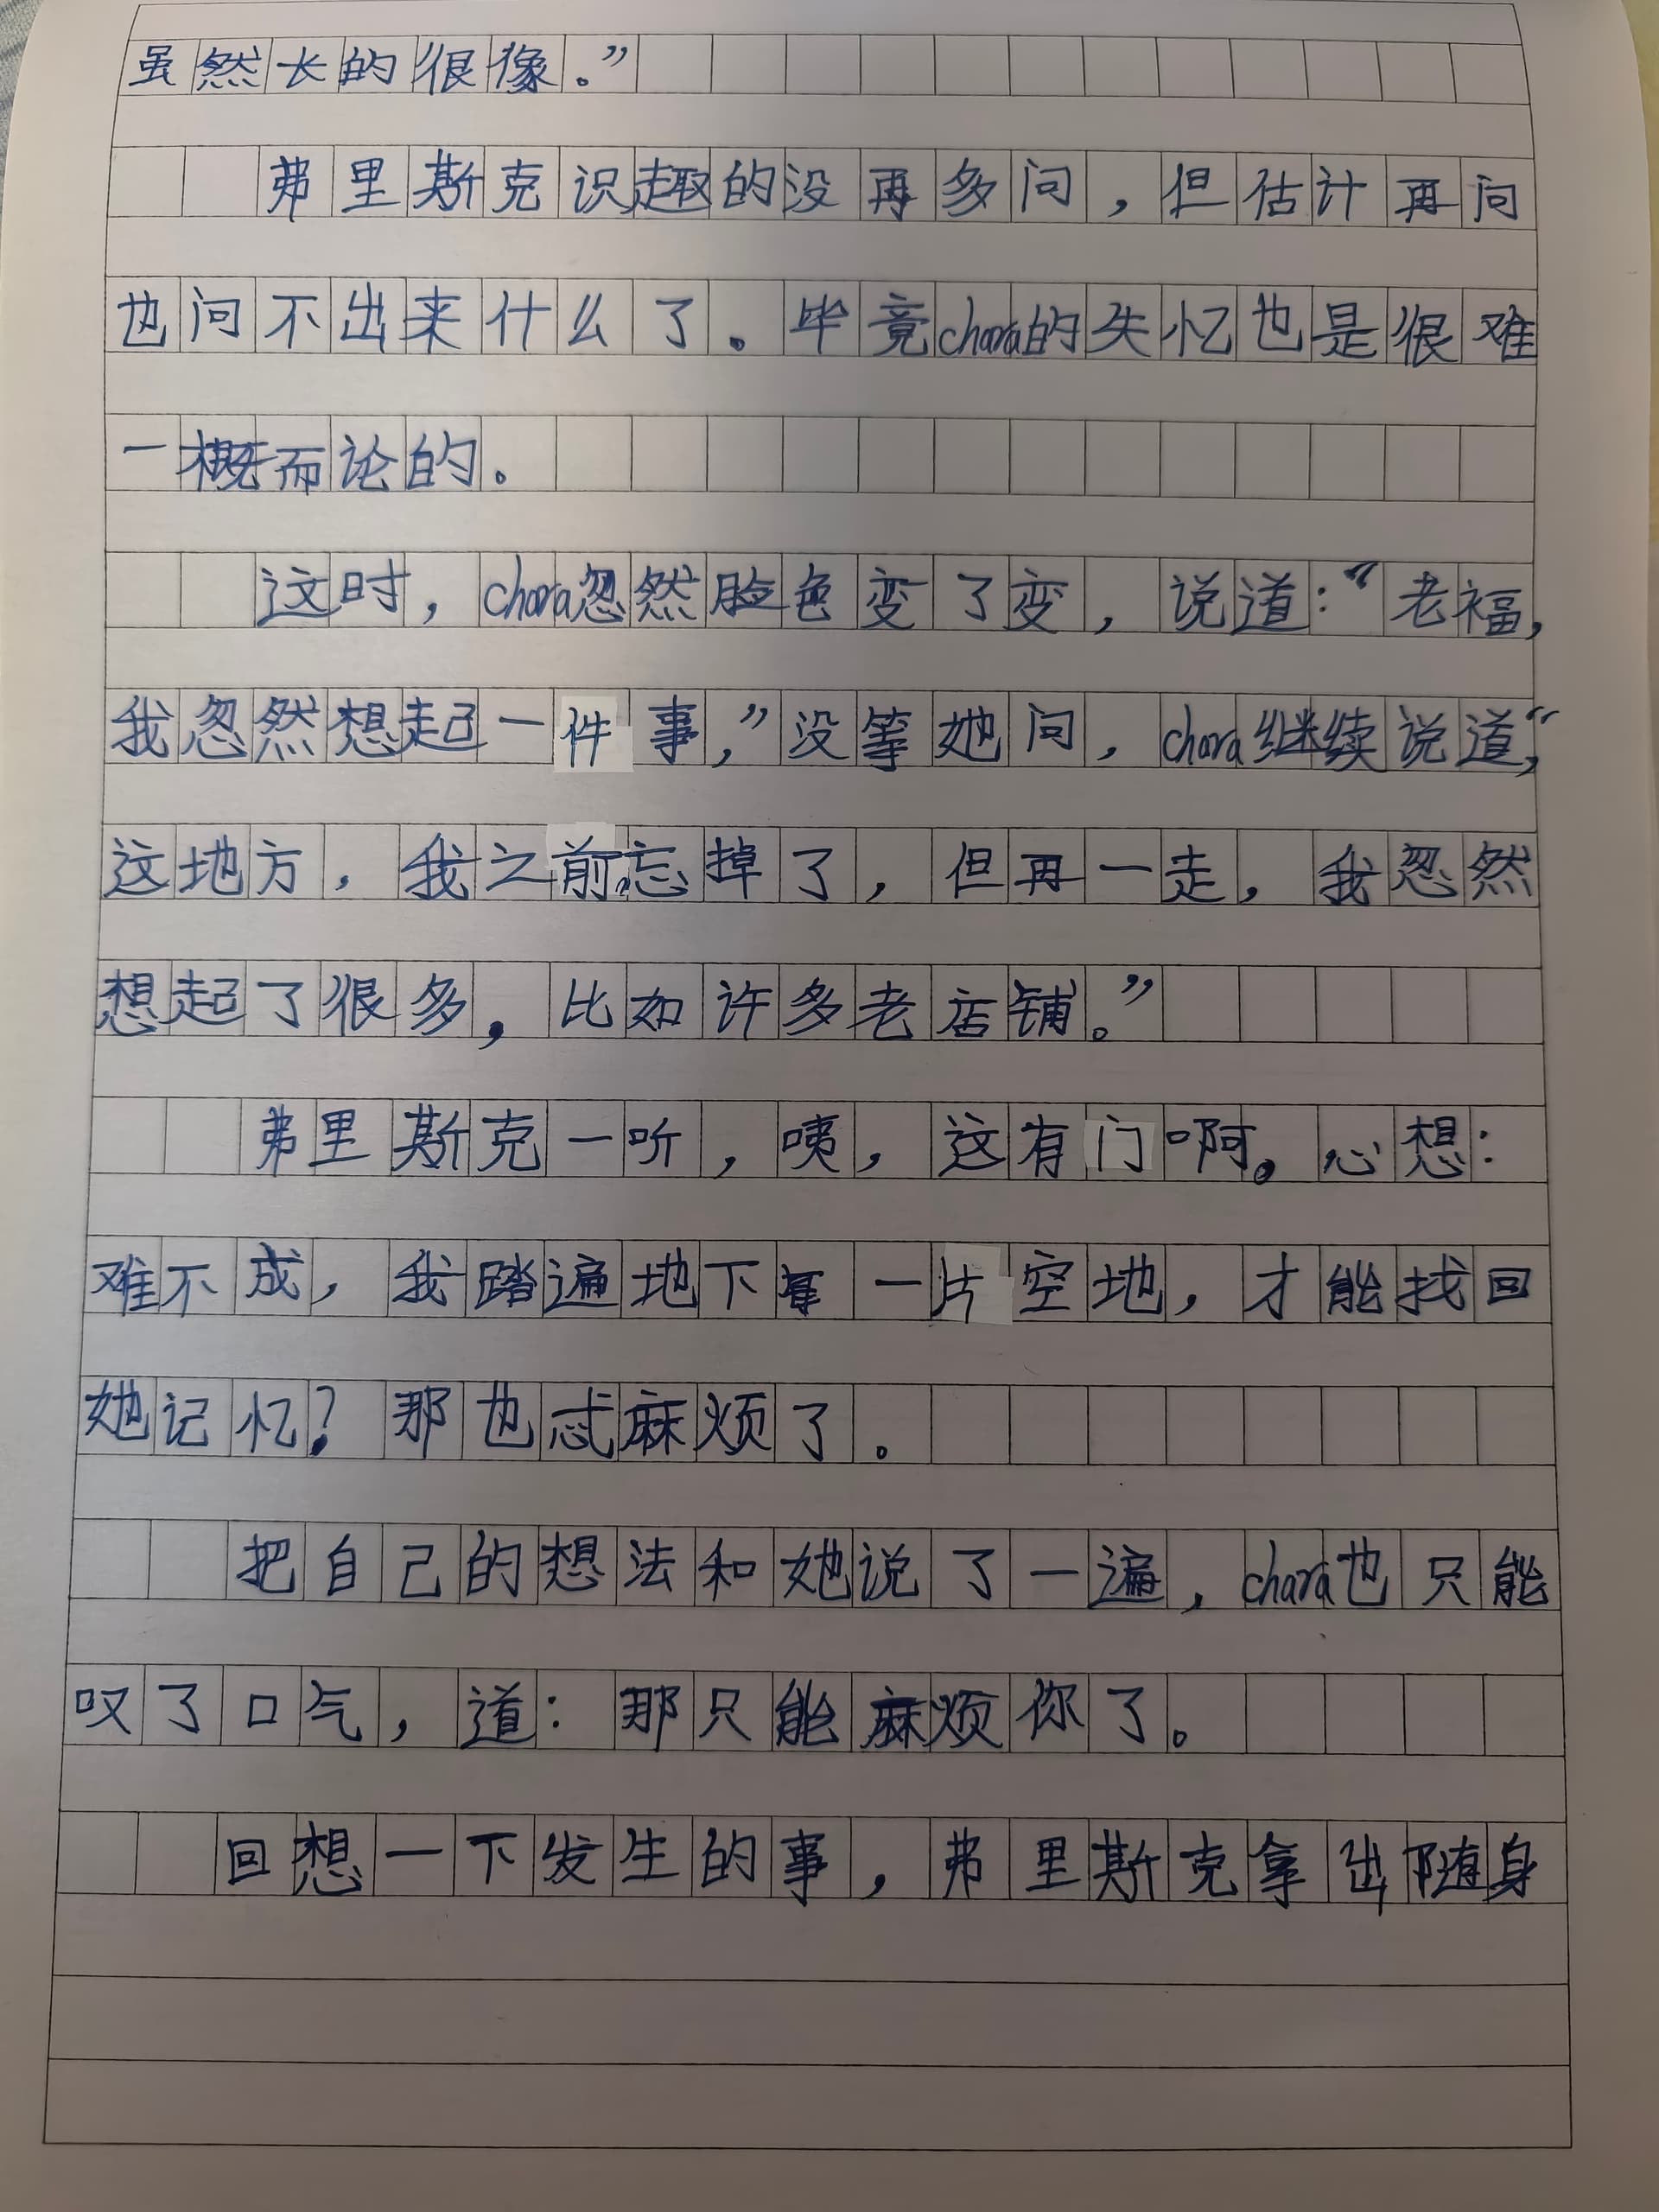 虽然长的很像。”
弗里斯克识趣的没再多问，但估计再问
也问不出来什么了。毕竟chara的失忆也是很难
一概而论的。
这时，chara忽然脸色变了变，说道：“老福，
我忽然想起一件事，”没等她问，chara继续说道，“
这地方，我之前忘掉了，但再一走，我忽然
想起了很多，比如许多老店铺。”
弗里斯克一听，咦，这有门啊。心想：
难不成，我踏遍地下每一片空地，才能找回
她记忆？那也忒麻烦了。
把自己的想法和她说了一遍，chara也只能
叹了口气，道：那只能麻烦你了。
回想一下发生的事，弗里斯克拿出随身